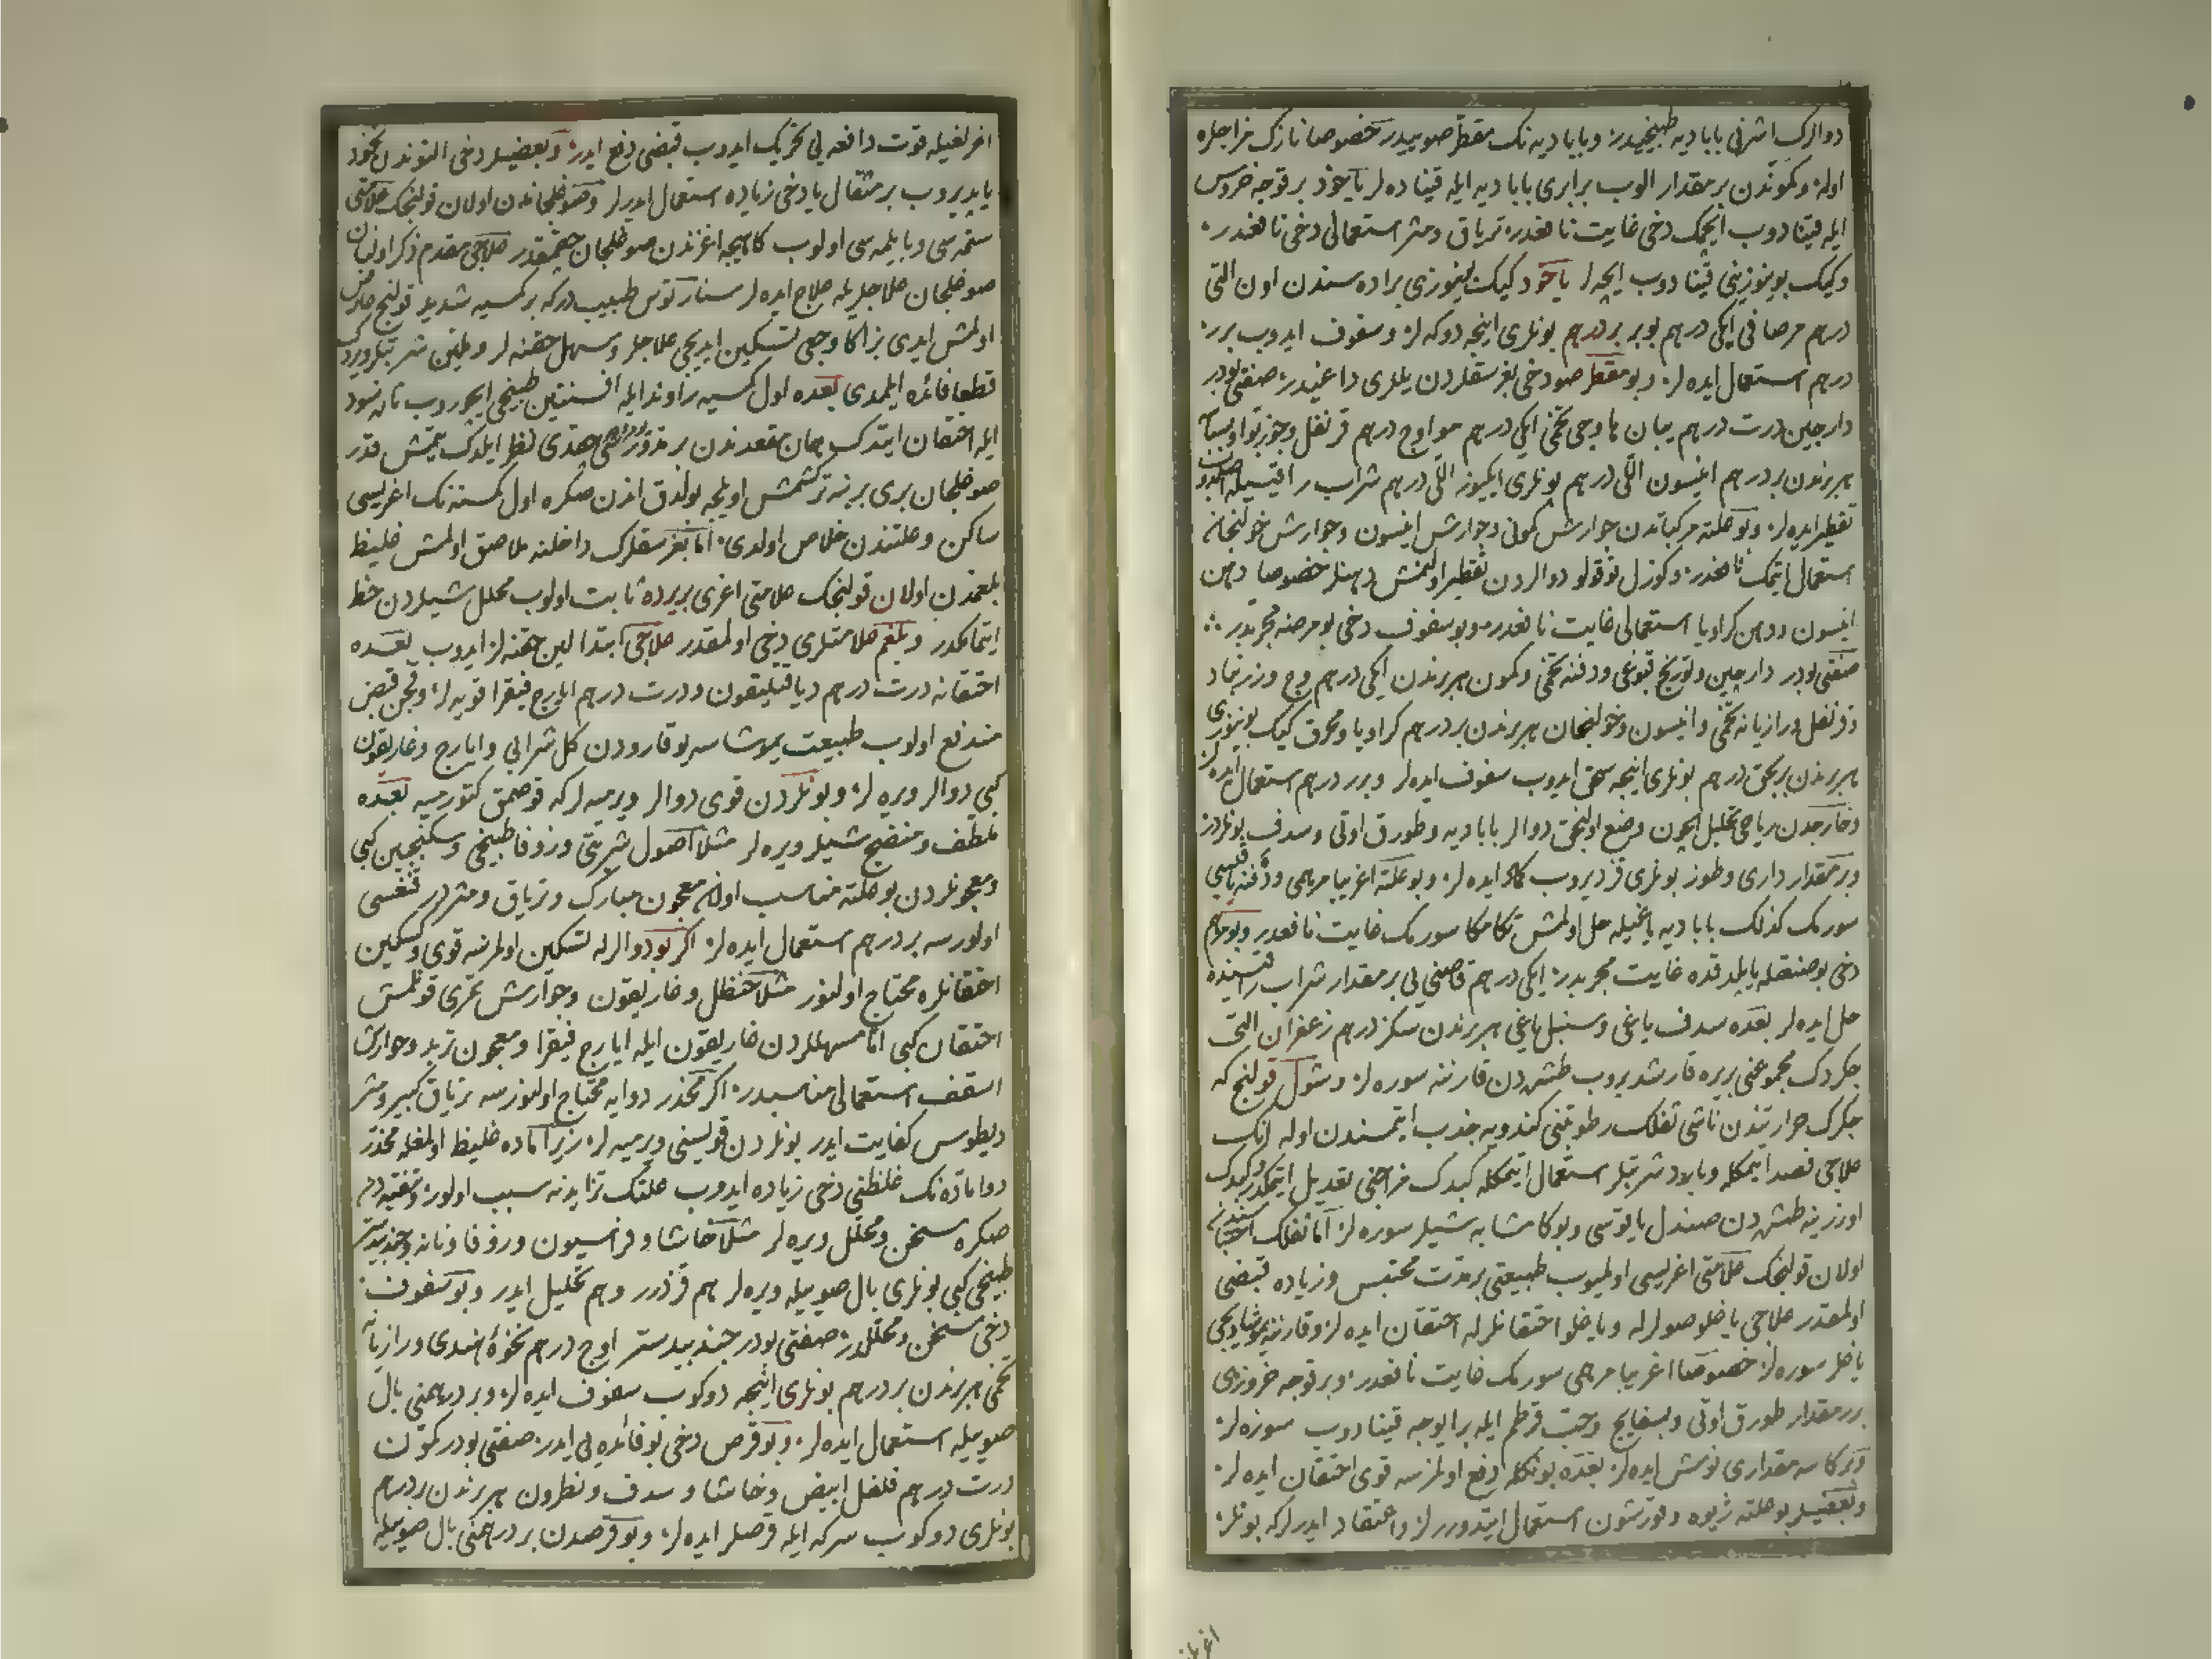 دوالرك اشرفی بابادیه طبیخیدر وبابادیه نك مقطر صوییدر خصوصا نازك مزاجلره
اوله وكموندن بر مقدار الوب برابری بابادیه ایله قیناده لر یاخود بر قوجه خروس
ایله قینادوب ایچمك دخی غایت نافعدر تریاق ومثر استعمالی دخی نافعدر
وكیك بوینوزینی قینادوب ایچه لر یاخود كیك بینوزی براده سندن اون التی
درهم مرصافی ایكی درهم بوبر بر درهم بونلری اینجه دوكه لر وسفوف ایدوب برر
درهم استعمال ایده لر وبو مقطر صو دخی بغرسقلردن یللری داغیدر صفتی بودر
دارچین درت درهم یبان هاوجی تخمی ایكی درهم مو اوچ درهم قرنفل وجوز بوا وبسباسه
هر برندن بر درهم انیسون اللی درهم بونلری ایكیوز اللی درهم شراب راقیسیله
تقطیر ایده لر وبو علته مركباتدن جوارش كمونی وجوارش انیسون وجوارش خولنجانه
استعمال ایتمك نافعدر وكوزل قوقولو دوالردن تقطیر اولنمش دهنلر خصوصا دهن
انیسون ودهن كراویا استعمالی غایت نافعدر وبو سفوف دخی بو مرضه مجربدر
صفتی بودر دارچین وتورنج قبوغی ودفنه تخمی وكمون هر برندن ایكی درهم وج وزرنباد
وقرنفل ورازیانه تخمی وانیسون وخولنجان هر برندن بر درهم كراویا ومحرق كیك بوینوزی
هر برندن بر بچق درهم بونلری اینجه سحق ایدوب سفوف ایده لر وبرر درهم استعمال ایده لر
وخارجدن ریاحی تحلیل ایچون وضع اولنجق دوالر بابادیه وطورق اوتی وسدف بونلردن
وبر مقدار داری وطوز بونلری قزدیروب كماد ایده لر وبو علته اغریبا مرهمی ودفنه یاغی
سورمك كذلك بابادیه یاغیله حل اولمش تكامكا سورمك غایت نافعدر وبو مرهم
دخی بو صنعتله یاپلدقده غایت مجربدر ایكی درهم قاصنی یی بر مقدار شراب راقیسنده
حل ایده لر بعده سدف یاغی وسنبل یاغی هر برندن سكز درهم زعفران التی
چكردك مجموعنی بریره قارشدیروب طشردن قارننه سوره لر وشول قولنج كه
جكرك حرارتندن ناشی ثفلك رطوبتنی كندویه جذب ایتمسندن اوله انك
علاجی فصد ایتمكله وبارد شربتلر استعمال ایتمكله كبدك مزاجنی تعدیل ایتمكدر وكبدك
اوزرینه طشردن صندل یاقوسی وبوكا مشابه شیلر سوره لر اما ثفلك احتباسندن
اولان قولنجك علامتی اغریسی اولمیوب طبیعتی بر مدت محتبس وزیاده قبضی
اولمقدر علاجی یاغلو صولرله ویاغلو احتقانلرله احتقان ایده لر وقارننه یومشادیجی
یاغلر سوره لر خصوصا اغریبا مرهمی سورمك غایت نافعدر وبر قوجه خروزی
بر مقدار طورق اوتی وبسفایج وحب قرطم ایله بر ایوجه قینادوب سوزه لر
وبر كاسه مقداری نوش ایده لر بعده بونكله دفع اولمزسه قوی احتقان ایده لر
وبعضیلر بو علته ژیوه وقورشون استعمال ایتدوررلر واعتقاد ایدرلركه بونلر
اغرلغیله
اغرلغیله قوت دافعه یی تحریك ایدوب قبضی دفع ایدر وبعضیلر دخی التوندن نخود
یاپدیروب بر مثقال یا دخی زیاده استعمال ایدرلر وصوغلجاندن اولان قولنجك علامتی
ستمه سی وبایلمه سی اولوب كاهیجه اغزندن صوغلجان چیقمقدر علاجی مقدم ذكر اولنان
صوغلجان علاجلریله علاج ایده لر سنارتوس طبیب دركه بر كمسیه شدید قولنج عارض
اولمش ایدی بز اكا وجعی تسكین ایدیجی علاجلر ومسهل حقنه لر وملین شربتلر ویردك
قطعا فائده ایلمدی بعده اول كمسیه راوند ایله افسنتین طبیخی ایچوروب تازه سود
ایله احتقان ایتدك همان مقعدندن بر مدور شی چقدی نظر ایلدك یتمش قدر
صوغلجان بری برینه ترکشمش اویله بولدق اندن صكره اول كمسنه نك اغریسی
ساكن وعلتندن خلاص اولدی اما بغرسقلرك داخلنه ملاصق اولمش غلیظ
بلغمدن اولان قولنجك علامتی اغری بریرده ثابت اولوب محلل شیلردن حظ
ایتمامكدر وبلغم علامتلری دخی اولمقدر علاجی ابتدا لین حقنه لر ایدوب بعده
احتقانه درت درهم دیافیلیقون ودرت درهم ایارج فیقرا قویه لر وقچن قبض
مندفع اولوب طبیعت یومشاسه یوقارودن كل شرابی وایارج وغاریقون
كبی دوالر ویره لر وبونلردن قوی دوالر ویرمیه لركه قوصمق كتورمیه بعده
ملطف ومنضج شیلر ویره لر مثلا اصول شربتی وزوفا طبیخی وسكنجبین كبی
ومعجونلردن بو علته مناسب اولان معجون مبارك وتریاق ومثردر قنغسی
اولورسه بر درهم استعمال ایده لر اكر بو دوالرله تسكین اولمزسه قوی ومسكین
احتقانلره محتاج اولنور مثلا حنظل وغاریقون وجوارش تمری قونلمش
احتقان كبی اما مسهللردن غاریقون ایله ایارج فیقرا ومعجون تربد وجوارش
اسقف استعمالی مناسبدر اكر مخدر دوایه محتاج اولنورسه تریاق كبیر ومثر
دیطوس كفایت ایدر بونلردن قویسنی ویرمیه لر زیرا ماده غلیظ اولمغله مخدر
دوا ماده نك غلظتنی دخی زیاده ایدوب علتك تزایدنه سبب اولور وتنقیه دن
صكره مسخن ومحلل ویره لر مثلا حاشا وفراسیون وزوفا ونانه وجندبیدستر
طبیخی كبی بونلری بال صوییله ویره لر هم قزدرر وهم تحلیل ایدر وبو سفوف
دخی مسخن ومحللدر صفتی بودر جندبیدستر اوچ درهم نخوهٔ هندی ورازیانه
تخمی هر برندن بر درهم بونلری اینجه دوكوب سفوف ایده لر وبر درهمنی بال
صوییله استعمال ایده لر وبو قرص دخی بو فائده یی ایدر صفتی بودر كمون
درت درهم فلفل ابیض وحاشا وسدف ونطرون هر برندن بر درهم
بونلری دوكوب سركه ایله قرصلر ایده لر وبو قرصدن بر درهمنی بال صوییله